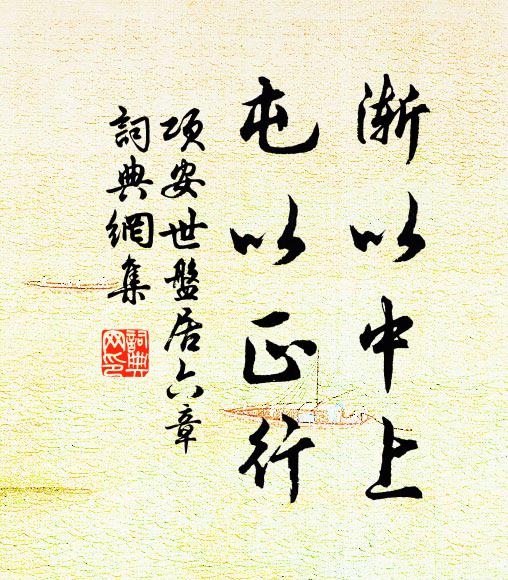 漸以中上
屯以正行
項安世盤居六章
詞典網集
詞典
网印